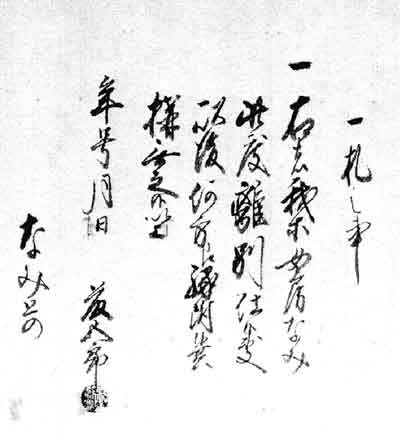 一札之事
一 右者我等女房なみ
此度離別仕
以後何方縁附共
構無之候以上
年号月日 郎
なみとの